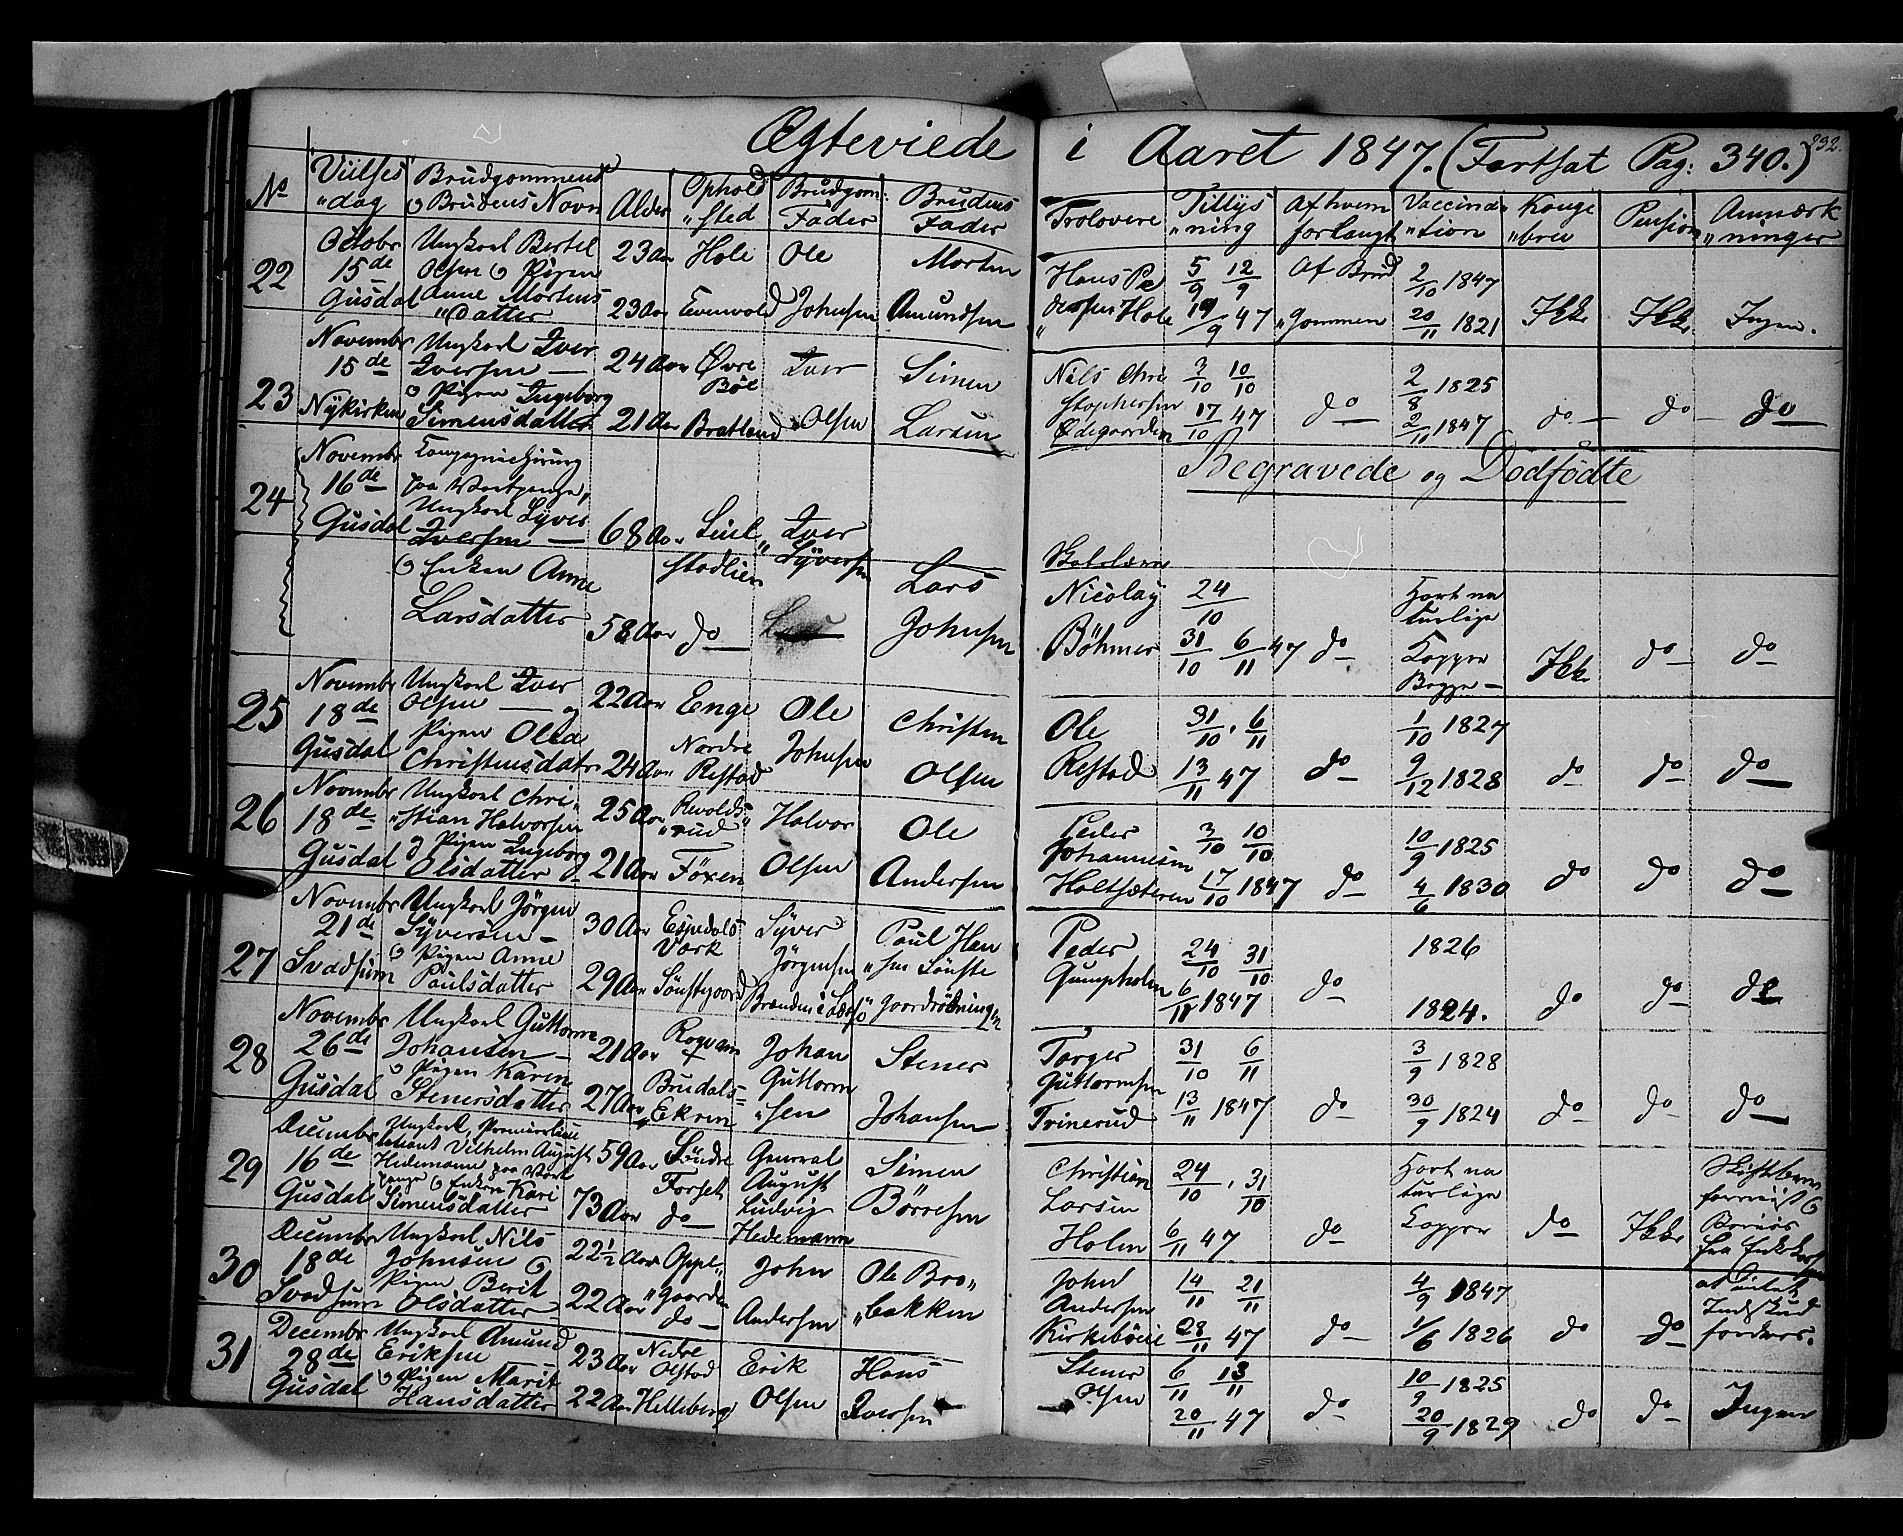 Ægteviede i Aaret 1847. (Fortsat Pag: 340.)
232.
No Vielses Brudgommens Alder Ophold Brudgom: Brudens Trolovere Tillys Af hvem Vaccina Konge Pension Anmærk
"dag og Brudens Navn "sted Fader Fader "ning forlangt "tion "brev "ninger
Octobr Ungkarl Bertel 23 Aar Hole Ole Morten Hans Pe 5/9 12/9 Af Brud 2/10 1847
22 15de Olsen og Pigen
Gusdal Anne Mortens 23 Aar Evenvold Johnsen Amundsen dersen Hole 19/9 47 "gommen 20/11 1821 Ikke Ikke Ingen.
"datter
Novembr Ungkarl Iver 24 Aar Øvre Iver Simen Nils Chri 3/10 10/10 2/8 1825
15de Iversen — Bøe
23 og Pigen Ingeborg stophersen
Nykirken Simensdatter 21 Aar Bratland Olsen Larsen Ødegaarden 17/10 47 do 2/11 1847 do — do — do
Begravede og Dødfødte
Novembr
24 16de paa Vartpenge,
Gusdal Ungkarl Syver
Iversen — 68 Aar Iver
og Enken Anne stadlien Syversen Lars Nicolay 24/10 Havt na
Larsdatter 58 Aar do Johnsen Bøhmer 31/10 6/11 47 do turlige
Kopper Ikke do do
Novembr Ungkarl Iver 22 Aar Enge Ole Christen Ole 31/10 . 6/11 1/10 1827
25 18de Olsen — og
Gusdal Pigen Olea Nordre Johnsen
Christensdatr 24 Aar Restad Olsen Restad 13/11 47 do 9/12 1828 do do do
Novembr Ungkarl Chri- 25 Aar Revolds Halvor Ole Peder 3/10 10/10 10/9 1825
26 18de "stian Halvorsen "rud Johannesen
Gusdal og Pigen Ingeborg
Olsdatter 21 Aar Föxen Olsen Andersen Holtsæteren 17/10 1847 do 4/6 1830 do do do
Novembr Ungkarl Jörgen 30 Aar Espedals Syver Paul Han Peder 24/10 31/10 1826
21de Syversen — Værk
27 og Pigen Anne Jörgensen "sen Sönste Gumpholen
Svadsum Paulsdatter 29 Aar Sönstegaard 6/11 1847 do 1824. do do do
Novembr Ungkarl Guttorm 21 Aar Johan Stener Torger 31/10 6/11 3/9 1828
28 26de Johansen —
og Pigen Karen Brudals= Guttorm Guttormsen
Gusdal Stenersdatter 27 Aar "Ekren "sen Johansen Trinerud 13/11 1847 do 30/9 1824 do do do
Decembr Ungkarl, Premierlieu
29 16de tenant Vilhelm August 59 Aar Söndre General Simen Christian 24/10 . 31/10 Havt na
Hedemann paa Vart Forset August Larsen turlige
Gusdal penge og Enken Kari
Simensdatter 73 Aar do Ludvig Börresen Holen 6/11 47 do Kopper do Ikke
Hedemann
Decembr Ungkarl Nils 22½ Aar Oppe" John Ole Bro" John 14/11 21/11 4/9 1847
30 18de Johnsen og "gaarden Andersen
Svadsum Pigen Berit
Olsdatter 22 Aar do Andersen "bakken Kirkeböeie 28/11 47 do 1/6 1826 do do
Decembr Ungkarl Amund 23 Aar Nedre Erik Hans Stener 6/11 13/11 10/9 1825
31 28de Eriksen Olstad
og Pigen Marit Olsen
Gusdal Hansdatter 22 Aar Helleberg Olsen Iversen 20/11 47 do 20/9 1829 do do Ingen